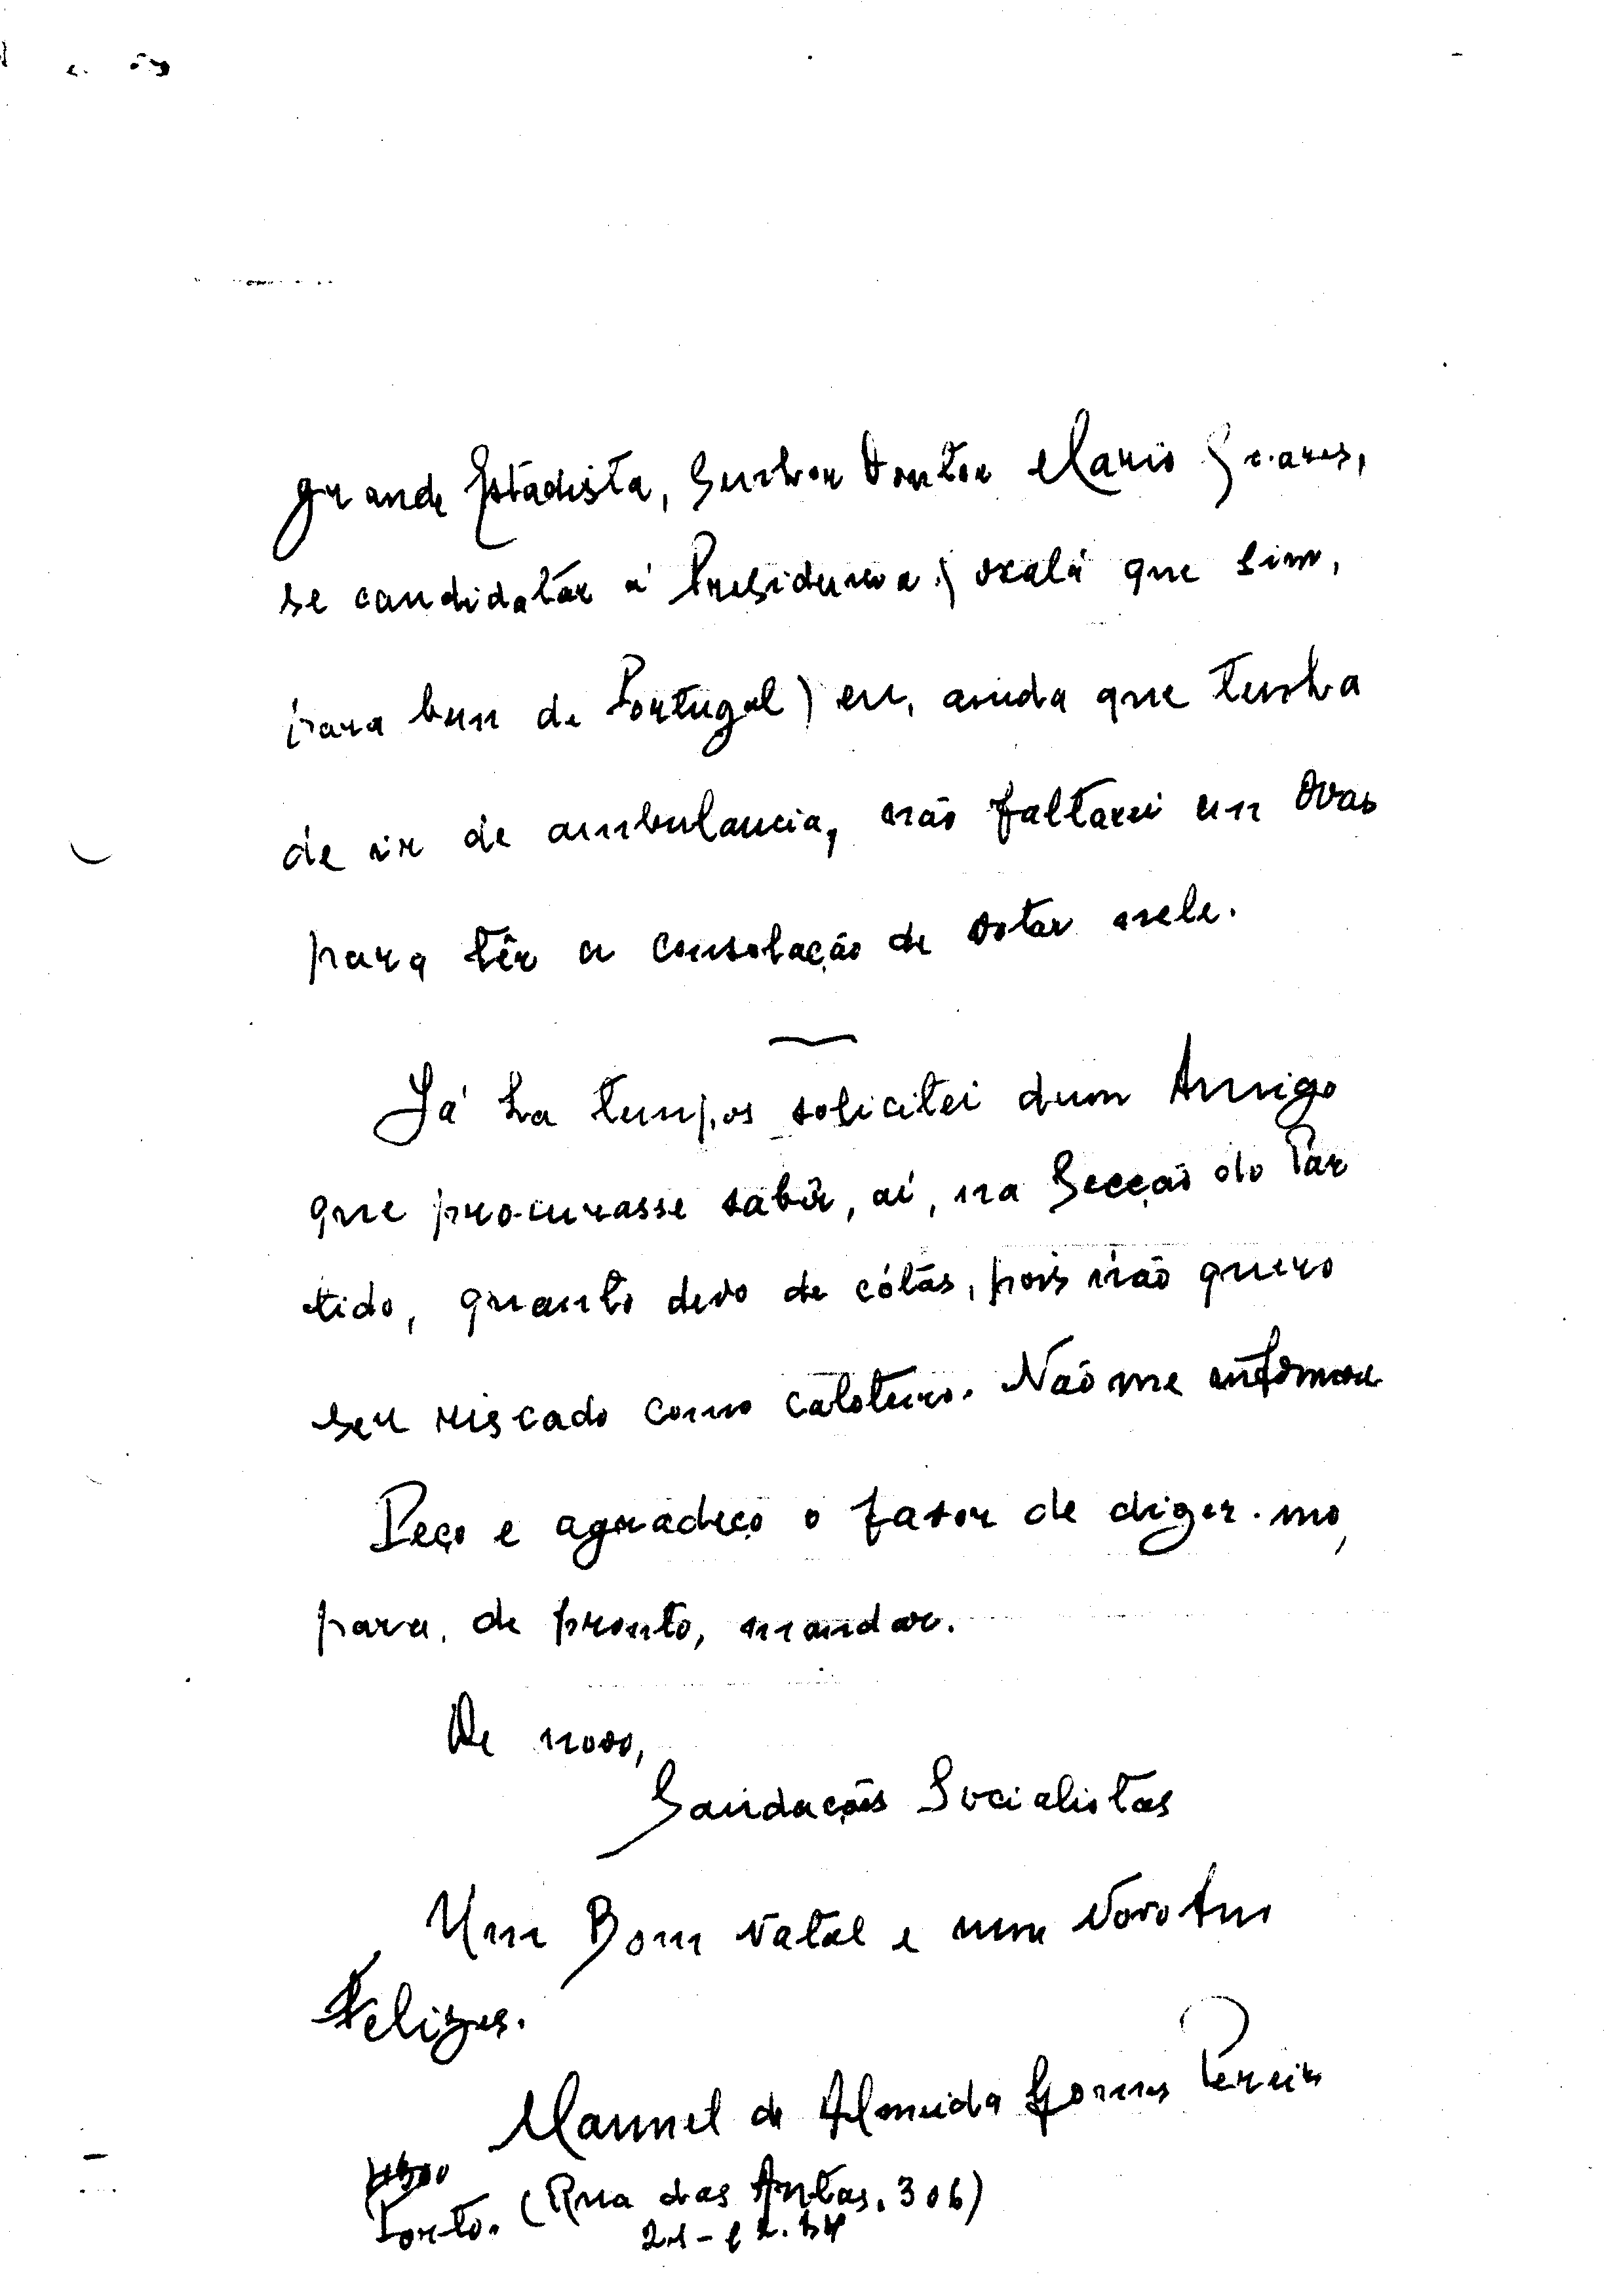 grande Estadista, Senhor Doutor Mario Soares,
se candidatár á Presidencia (oxalá que sim,
para bem de Portugal) eu, ainda que tenha
de ir de ambulancia, não faltarei em Ovar
para têr a consolação de votar nele.
Já ha tempos solicitei dum Amigo
que procurasse sabêr, aí, na Secção do Par
tido, quanto devo de cótas, pois não quero
ser riscado como caloteiro. Não me informou
Peço e agradeço o favor de dizer-mo,
para, de pronto, mandar.
De novo,
Saudações Socialistas
Um Bom Natal e um Novo Ano
Felizes.
Manuel de Almeida Gomes Pereira
4300
Porto. (Rua das Antas, 306)
21-12-84